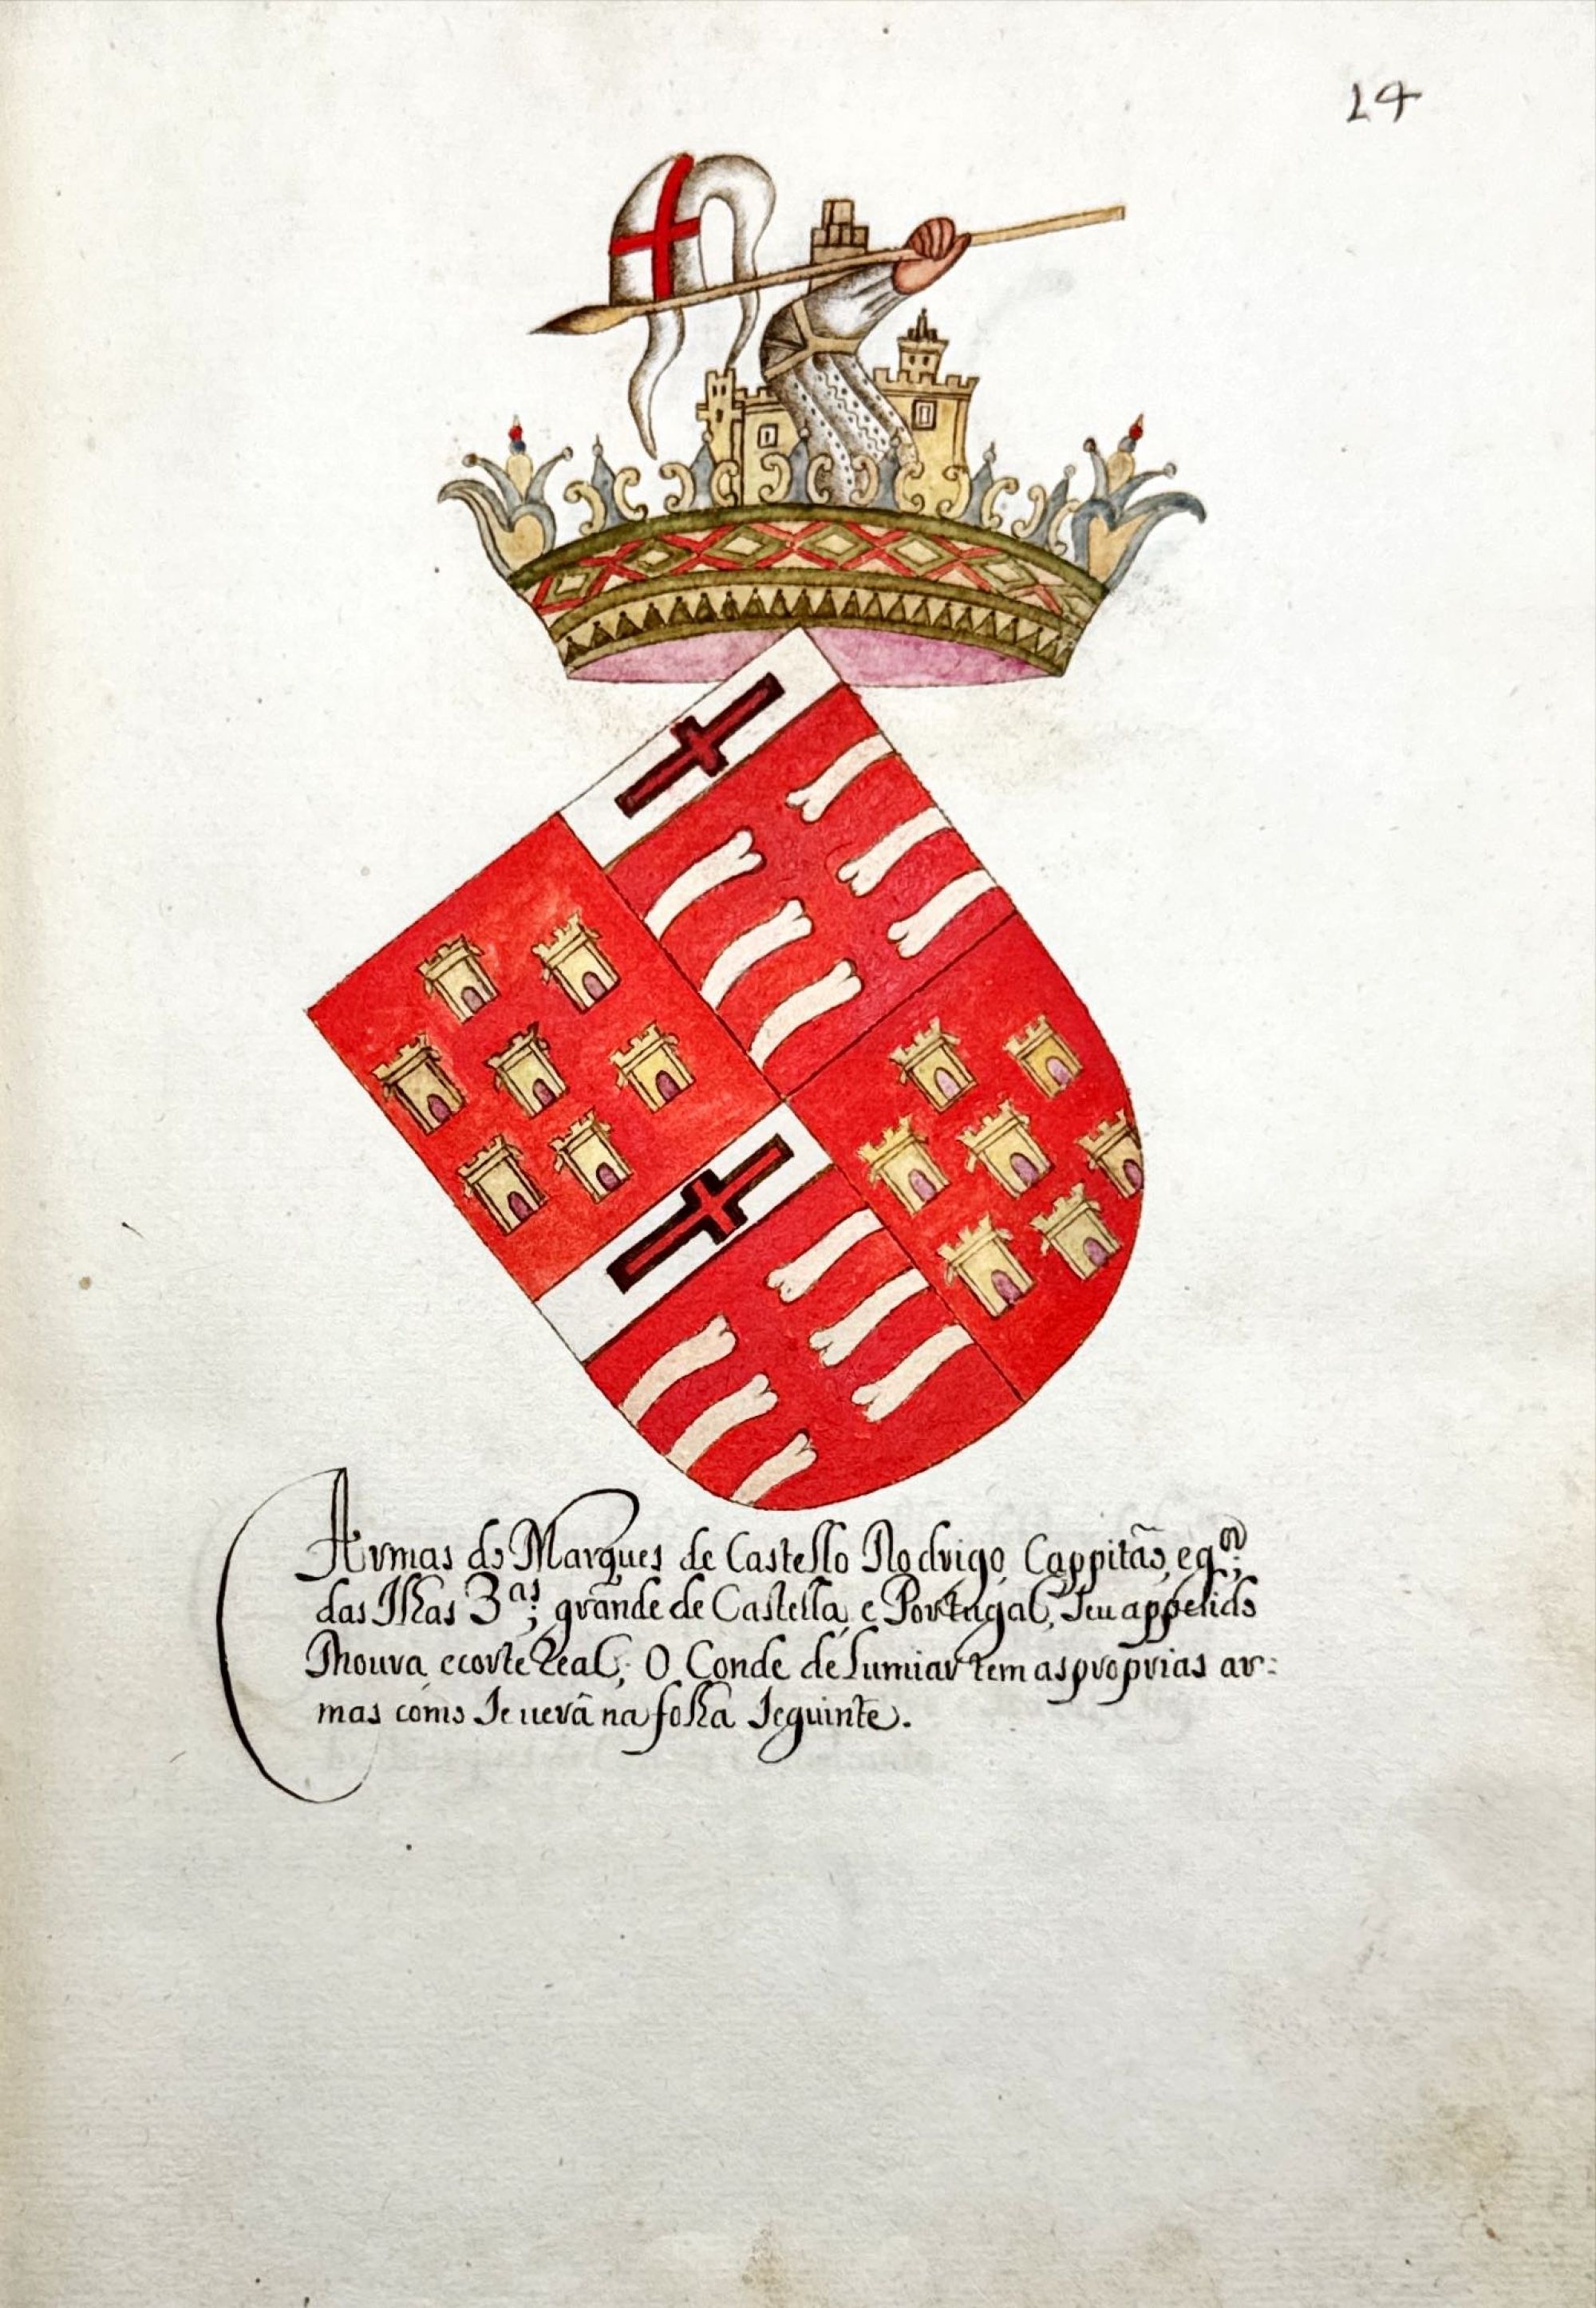 14
Armas do Marques de Castello Rodrigo, Cappitão, e g.ᵒʳ
das Ilhas 3.ᵃˢ; grande de Castella, e Portugal, seu appelido
Moura, e corte Real; O Conde de lumiar tem as proprias ar:
mas como se uerâ na folha seguinte.